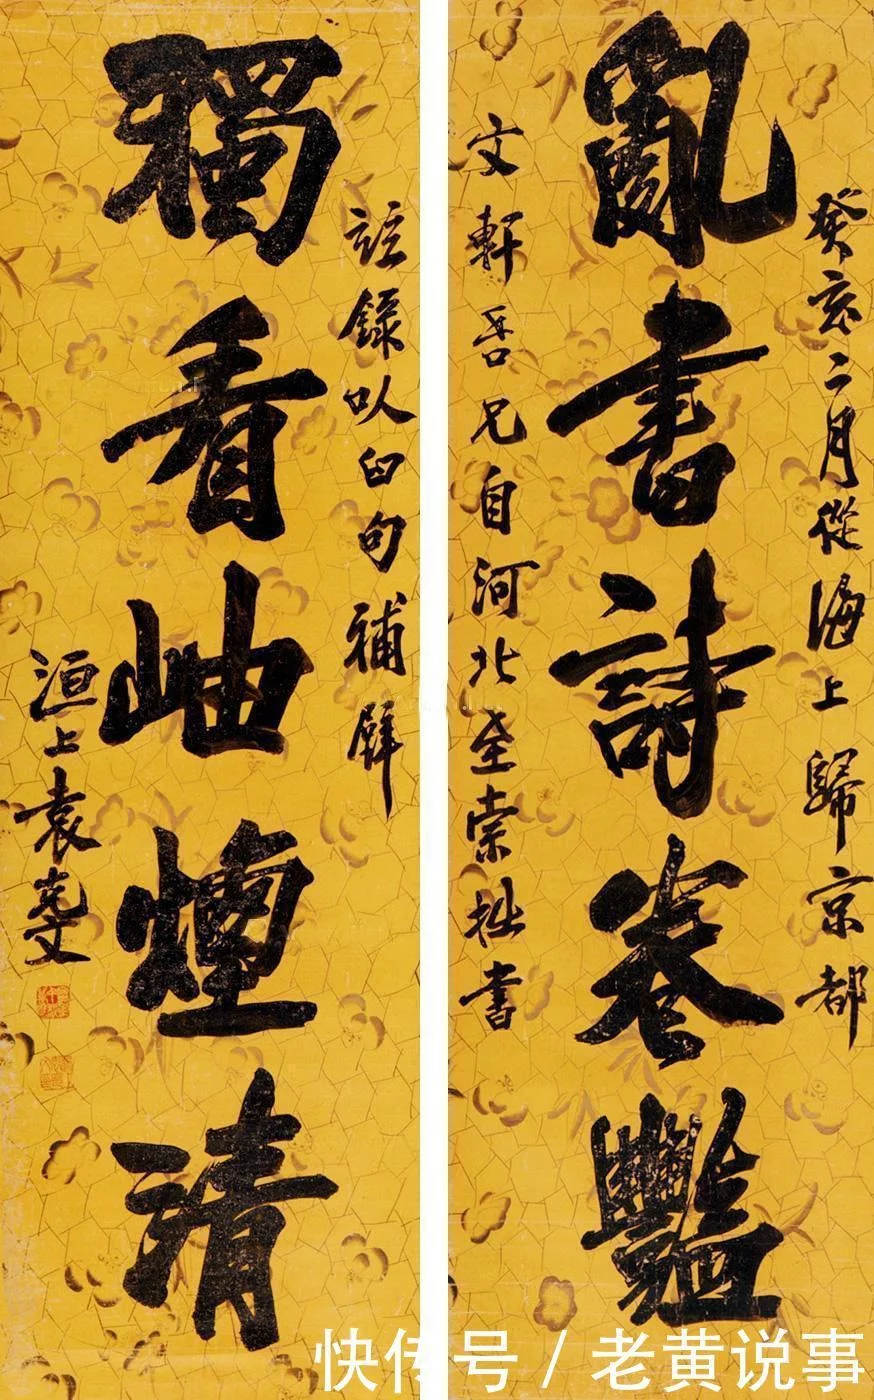 癸亥二月從海上歸京都
亂書詩卷豔
文軒吾兄自河北至索拙書
錄以臼句補壁
獨看岫煙清
洹上袁克文
快传号 / 老黄说事